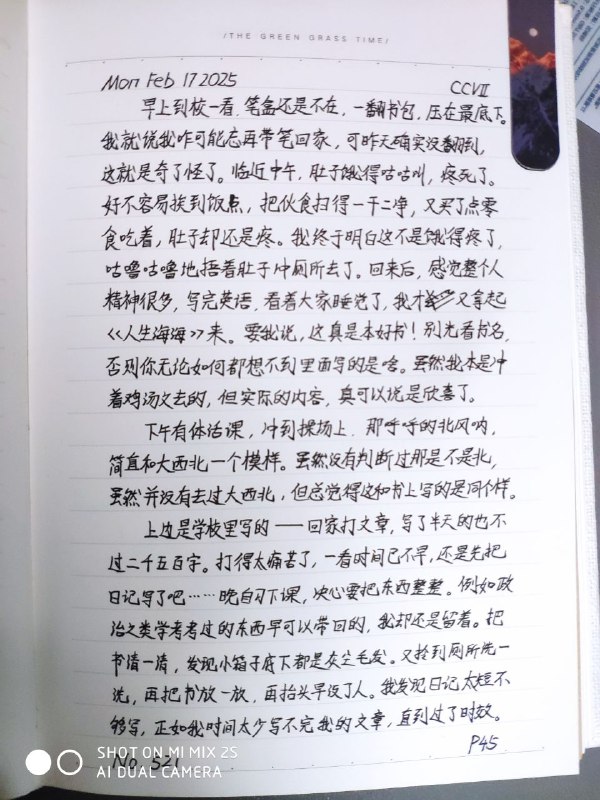 /THE GREEN GRASS TIME/
Mon Feb 17 2025 CCVII
早上到校一看,笔盒还是不在,一翻书包,压在最底下。
我就说我咋可能忘再带笔回家,可昨天确实没翻到,
这就是奇了怪了。临近中午,肚子饿得咕咕叫,疼死了。
好不容易挨到饭点,把伙食扫得一干二净,又买了点零
食吃着,肚子却还是疼。我终于明白这不是饿得疼了,
咕噜咕噜地捂着肚子冲厕所去了。回来后,感觉整个人
精神很多,写完英语,看着大家睡觉了,我才又拿起
《人生海海》来。要我说,这真是本好书!别光看书名,
否则你无论如何都想不到里面写的是啥。虽然我本是冲
着鸡汤文去的,但实际的内容,真可以说是欣喜了。
下午有体活课,冲到操场上,那呼呼的北风呐,
简直和大西北一个模样。虽然没有判断过那是不是北,
虽然并没有去过大西北,但总觉得这和书上写的是同个样。
上边是学校里写的——回家打文章,写了半天的也不
过二千五百字。打得太痛苦了,一看时间已不早,还是先把
日记写了吧……晚自习下课,决心要把东西整整。例如政
治之类学考考过的东西早可以带回的,我却还是留着。把
书清一清,发现小箱子底下都是灰尘毛发。又拎到厕所洗一
洗,再把书放一放,再抬头早没了人。我发现日记太短不
够写,正如我时间太少写不完我的文章,直到过了时效。
P45
No. 521
SHOT ON MI MIX 2S
AI DUAL CAMERA